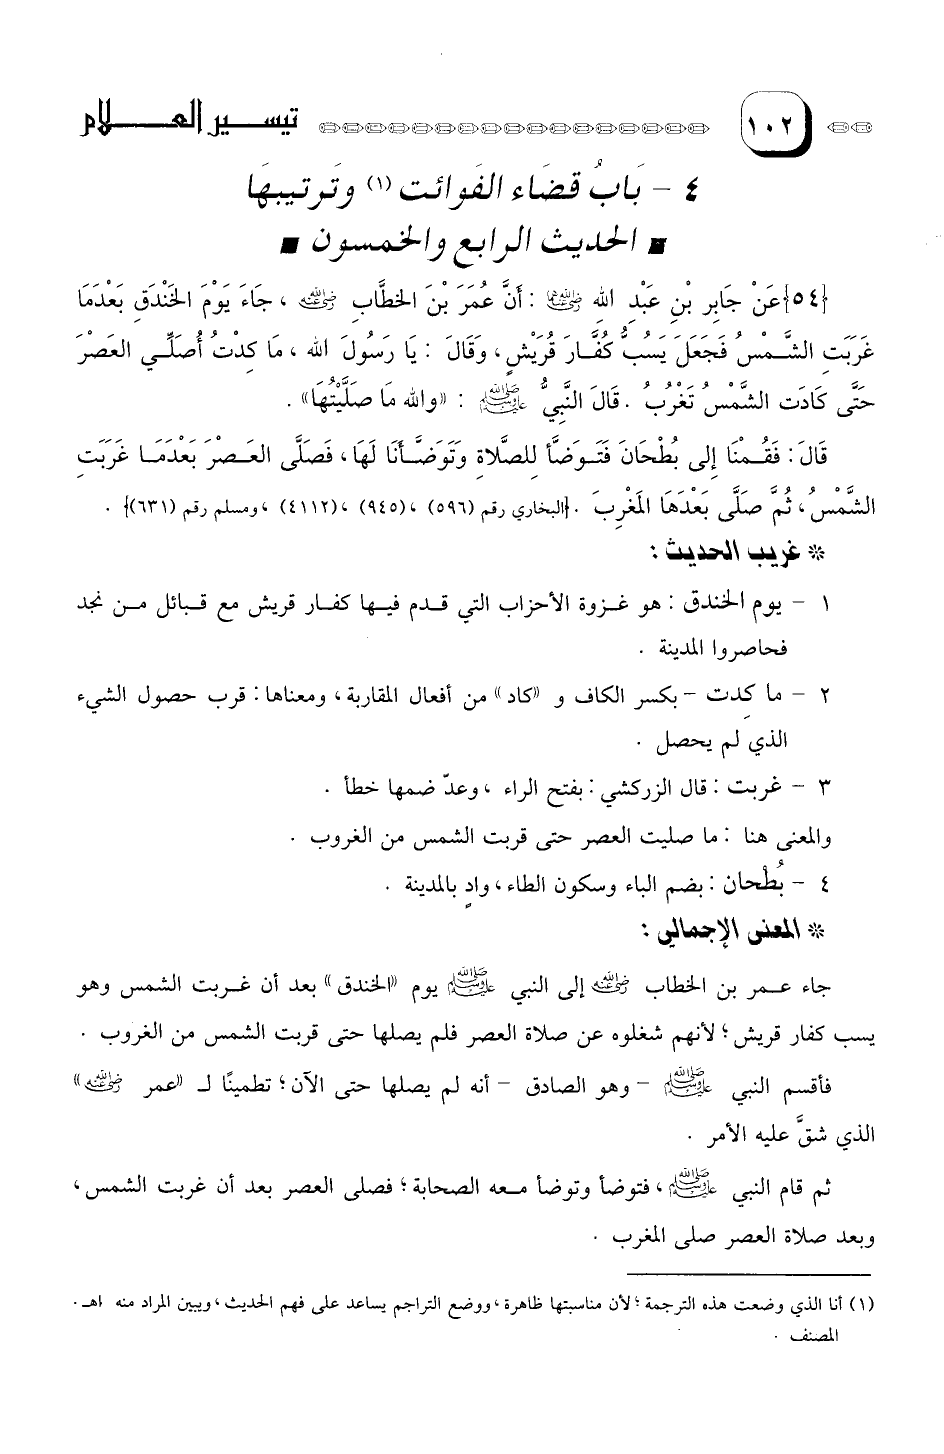 ١٠٢ تيسير العلام
٤ - بَابُ قضَاء الفَوائت (١) وتَرتيبهَا
■ الحديث الرابع والخمسون ■
{٥٤}عَنْ جَابِر بْنِ عَبْد الله رضي الله عنهما : أَنَّ عُمَرَ بْنَ الخطَّابِ رضي الله عنه ، جَاءَ يَوْمَ الخَنْدَقِ بَعْدَمَا
غَرَبَت الشَّمْسُ فَجَعَلَ يَسُبُّ كُفَّارَ قُرَيْشٍ، وَقَالَ : يَا رَسُولَ الله ، مَا كِدْتُ أُصَلِّي العَصْرَ
حَتَّى كَادَت الشَّمْسُ تَغْرُبُ . قَالَ النَّبِيُّ ﷺ : «والله مَا صَلَّيْتُهَا» .
قَالَ: فَقُمْنَا إِلى بُطْحَانَ فَتَوَضَّأَ للصَّلاة وَتَوَضَّأنَا لَهَا، فَصَلَّى العَصْرَ بَعْدَمَا غَرَبَتِ
الشَّمْسُ، ثُمَّ صَلَّى بَعْدَهَا المَغْرِبَ . {البخاري رقم (٥٩٦) ،(٩٤٥) ،(٤١١٢) ، ومسلم رقم (٦٣١)} .
* غريب الحديث :
١ - يوم الخندق : هو غزوة الأحزاب التي قدم فيها كفار قريش مع قبائل من نجد
فحاصروا المدينة .
٢ - ما كِدت - بكسر الكاف و «كاد» من أفعال المقاربة، ومعناها: قرب حصول الشيء
الذي لم يحصل .
٣ - غربت : قال الزركشي : بفتح الراء ، وعدّ ضمها خطأ .
والمعنى هنا : ما صليت العصر حتى قربت الشمس من الغروب .
٤ - بُطْحان : بضم الباء وسكون الطاء، وادٍ بالمدينة .
* المعنى الإجمالي :
جاء عمر بن الخطاب رضي الله عنه إلى النبي ﷺ يوم «الخندق» بعد أن غربت الشمس وهو
يسب كفار قريش؛ لأنهم شغلوه عن صلاة العصر فلم يصلها حتى قربت الشمس من الغروب .
فأقسم النبي ﷺ - وهو الصادق - أنه لم يصلها حتى الآن؛ تطمينًا لـ «عمر رضي الله عنه»
الذي شقَّ عليه الأمر .
ثم قام النبي ﷺ، فتوضأ وتوضأ معه الصحابة؛ فصلى العصر بعد أن غربت الشمس،
وبعد صلاة العصر صلى المغرب .
(١) أنا الذي وضعت هذه الترجمة؛ لأن مناسبتها ظاهرة، ووضع التراجم يساعد على فهم الحديث، ويبين المراد منه اهـ .
المصنف .